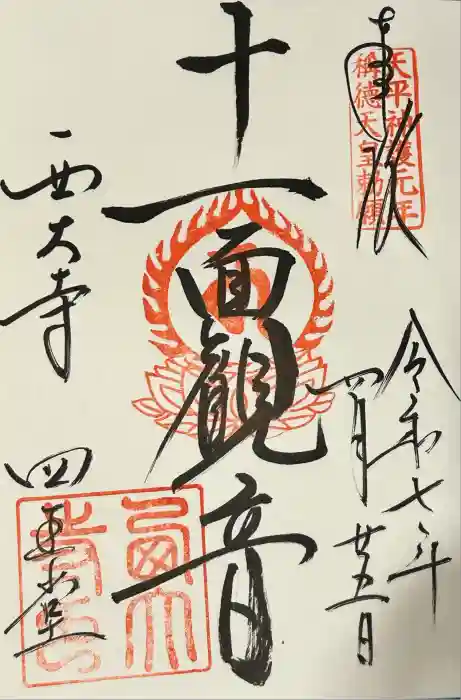 奉拝
天平神護元年
稱德天皇勅願
令和七年
四月廿五日
十一面觀音
西大寺
四王堂